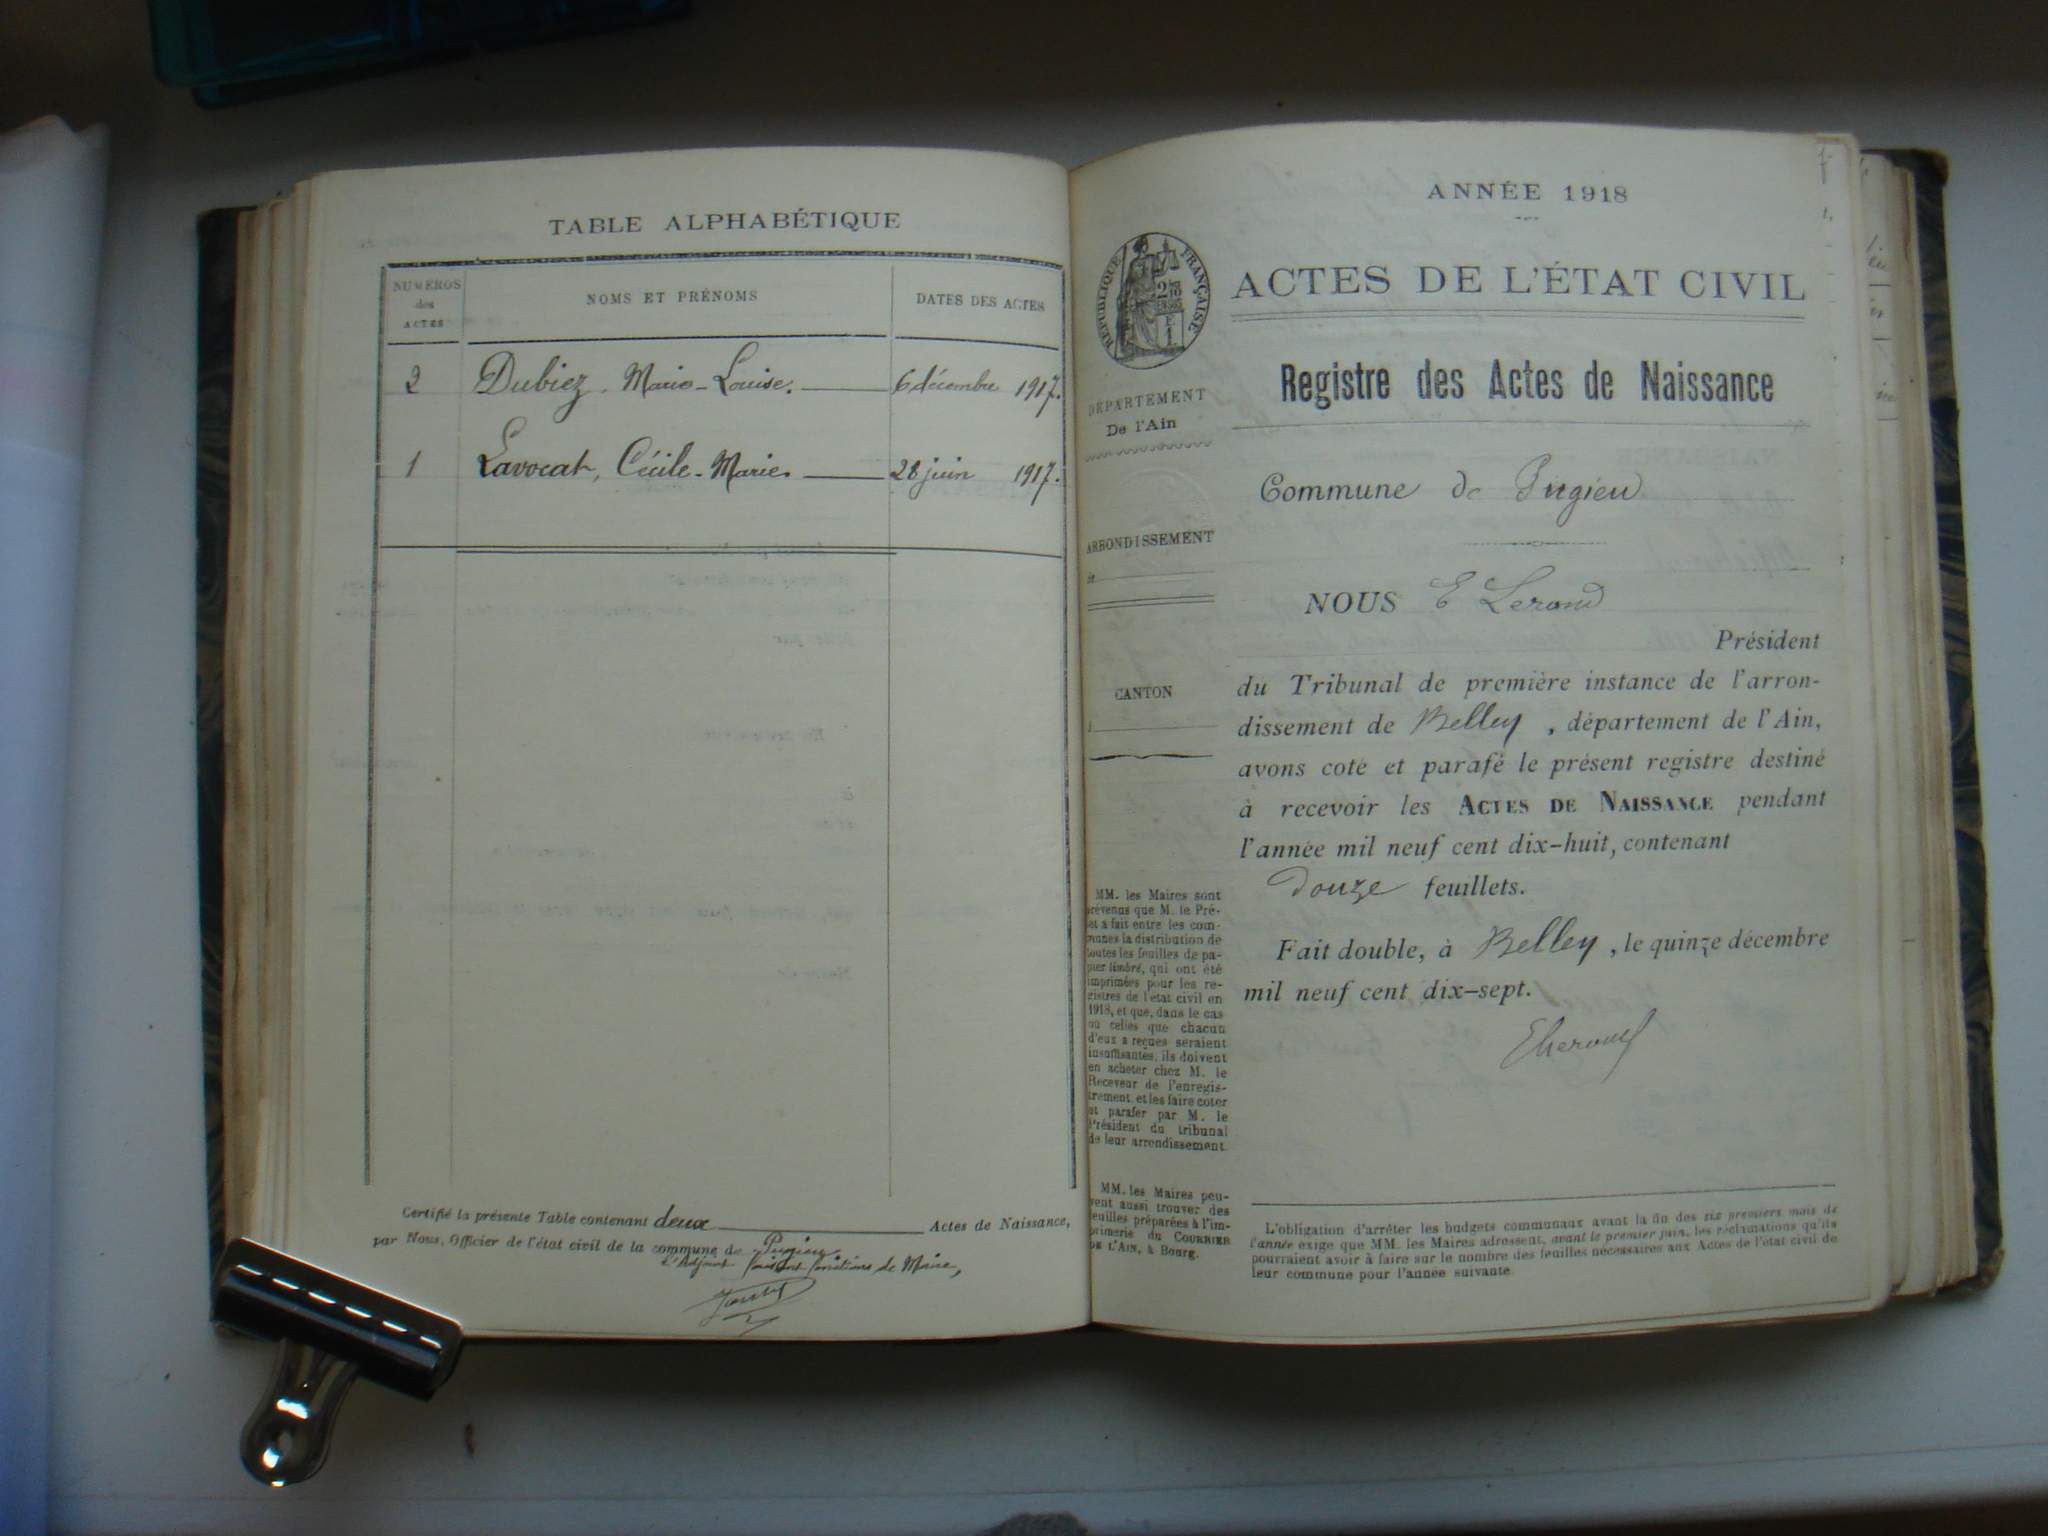 TABLE ALPHABÉTIQUE
NUMÉROS
des
ACTES
NOMS ET PRÉNOMS
DATES DES ACTES
2 Dubiez, Marie-Louise. 6 décembre 1917.
1 Lavocat, Cécile-Marie. 28 juin 1917.
Certifié la présente Table contenant deux Actes de Naissance,
par Nous, Officier de l'état civil de la commune de Pugieu
L'Adjoint faisant fonctions de Maire,
ANNÉE 1918
RÉPUBLIQUE FRANÇAISE
ACTES DE L'ÉTAT CIVIL
Registre des Actes de Naissance
DÉPARTEMENT
De l'Ain
Commune de Pugieu
ARRONDISSEMENT
NOUS E
Président
du Tribunal de première instance de l'arron-
dissement de Belley, département de l'Ain,
CANTON
avons coté et parafé le présent registre destiné
à recevoir les ACTES DE NAISSANCE pendant
l'année mil neuf cent dix-huit, contenant
douze feuillets.
Fait double, à Belley, le quinze décembre
mil neuf cent dix-sept.
MM. les Maires sont
prévenus que M. le Pré-
fet a fait entre les com-
munes la distribution de
toutes les feuilles de pa-
pier timbré, qui ont été
imprimées pour les re-
gistres de l'état civil en
1918, et que, dans le cas
où celles que chacun
d'eux a reçues seraient
insuffisantes, ils doivent
en acheter chez M. le
Receveur de l'enregis-
trement et les faire coter
et parafer par M. le
Président du tribunal
de leur arrondissement.
MM. les Maires peu-
vent aussi trouver des
feuilles préparées à l'im-
primerie du COURRIER
DE L'AIN, à Bourg.
L'obligation d'arrêter les budgets communaux avant la fin des six premiers mois de
l'année exige que MM. les Maires adressent, avant le premier juin, les réclamations qu'ils
pourraient avoir à faire sur le nombre des feuilles nécessaires aux Actes de l'état civil de
leur commune pour l'année suivante